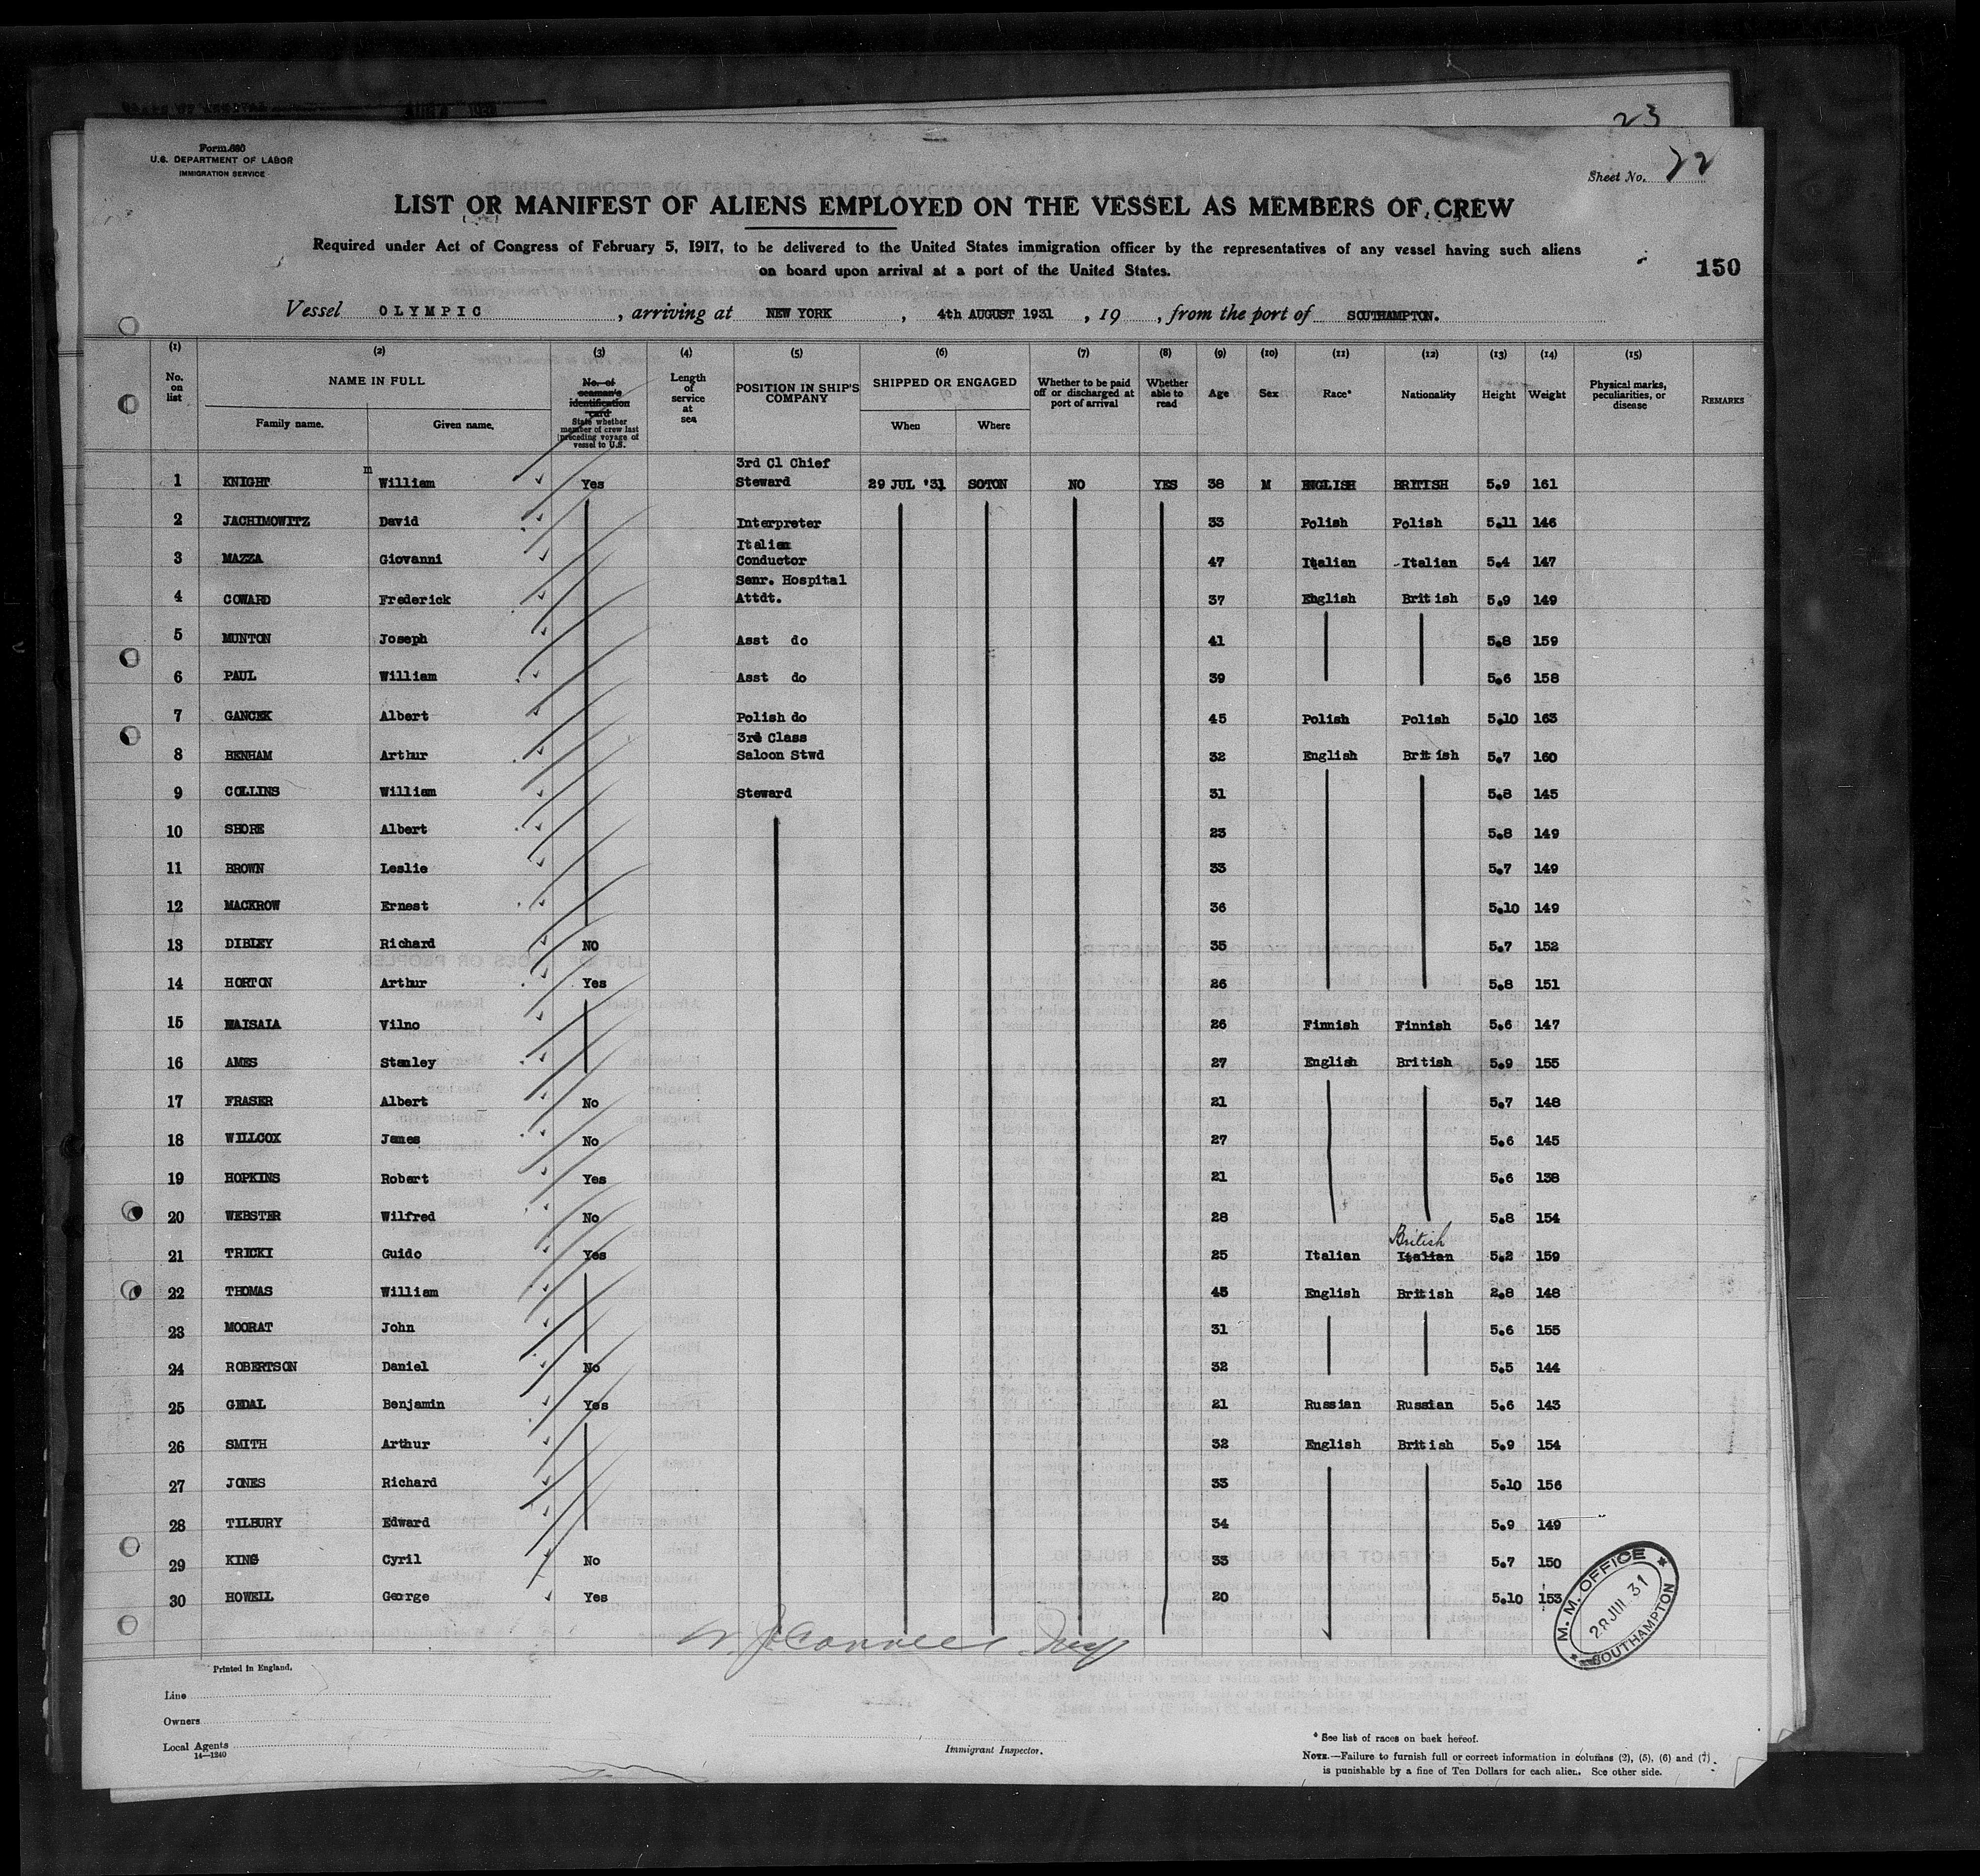 23
Form 680
U.S. DEPARTMENT OF LABOR
IMMIGRATION SERVICE
Sheet No. 22
LIST OR MANIFEST OF ALIENS EMPLOYED ON THE VESSEL AS MEMBERS OF CREW
Required under Act of Congress of February 5, 1917, to be delivered to the United States immigration officer by the representatives of any vessel having such aliens
on board upon arrival at a port of the United States.
150
Vessel OLYMPIC, arriving at NEW YORK, 4th AUGUST 1931, 19 , from the port of SOUTHAMPTON.
(1) (2) (3) (4) (5) (6) (7) (8) (9) (10) (11) (12) (13) (14) (15)
No. on list
NAME IN FULL
Family name. Given name.
No. of seaman's identification card
State whether member of crew last preceding voyage of vessel to U.S.
Length of service at sea
POSITION IN SHIP'S COMPANY
SHIPPED OR ENGAGED
When Where
Whether to be paid off or discharged at port of arrival
Whether able to read
Age Sex Race* Nationality Height Weight
Physical marks, peculiarities, or disease
REMARKS
1 KNIGHT m William Yes 3rd Cl Chief Steward 29 JUL '31 SOTON NO YES 38 M ENGLISH BRITISH 5.9 161
2 JACHIMOWITZ David Interpreter 33 Polish Polish 5.11 146
3 MAZZA Giovanni Italian Conductor 47 Italian Italian 5.4 147
4 COWARD Frederick Senr. Hospital Attdt. 37 English British 5.9 149
5 MUNTON Joseph Asst do 41 5.8 159
6 PAUL William Asst do 39 5.6 158
7 GANCEK Albert Polish do 45 Polish Polish 5.10 163
8 BENHAM Arthur 3rd Class Saloon Stwd 32 English British 5.7 160
9 COLLINS William Steward 31 5.8 145
10 SHORE Albert 23 5.8 149
11 BROWN Leslie 33 5.7 149
12 MACKROW Ernest 36 5.10 149
13 DIBLEY Richard NO 35 5.7 152
14 HORTON Arthur Yes 26 5.8 151
15 WAISAIA Vilno 26 Finnish Finnish 5.6 147
16 AMES Stanley 27 English British 5.9 155
17 FRASER Albert No 21 5.7 148
18 WILLCOX James No 27 5.6 145
19 HOPKINS Robert Yes 21 5.6 138
20 WEBSTER Wilfred No 28 5.8 154
British
21 TRICKI Guido Yes 25 Italian Italian 5.2 159
22 THOMAS William 45 English British 2.8 148
23 MOORAT John 31 5.6 155
24 ROBERTSON Daniel No 32 5.5 144
25 GEDAL Benjamin Yes 21 Russian Russian 5.6 143
26 SMITH Arthur 32 English British 5.9 154
27 JONES Richard 33 5.10 156
28 TILBURY Edward 34 5.9 149
29 KING Cyril No 33 5.7 150
30 HOWELL George Yes 20 5.10 153
M. M. OFFICE
28 JUL 31
SOUTHAMPTON
Printed in England.
Line
Owners
Local Agents
14—1240
Immigrant Inspector.
* See list of races on back hereof.
NOTE.—Failure to furnish full or correct information in columns (2), (5), (6) and (7)
is punishable by a fine of Ten Dollars for each alien. See other side.